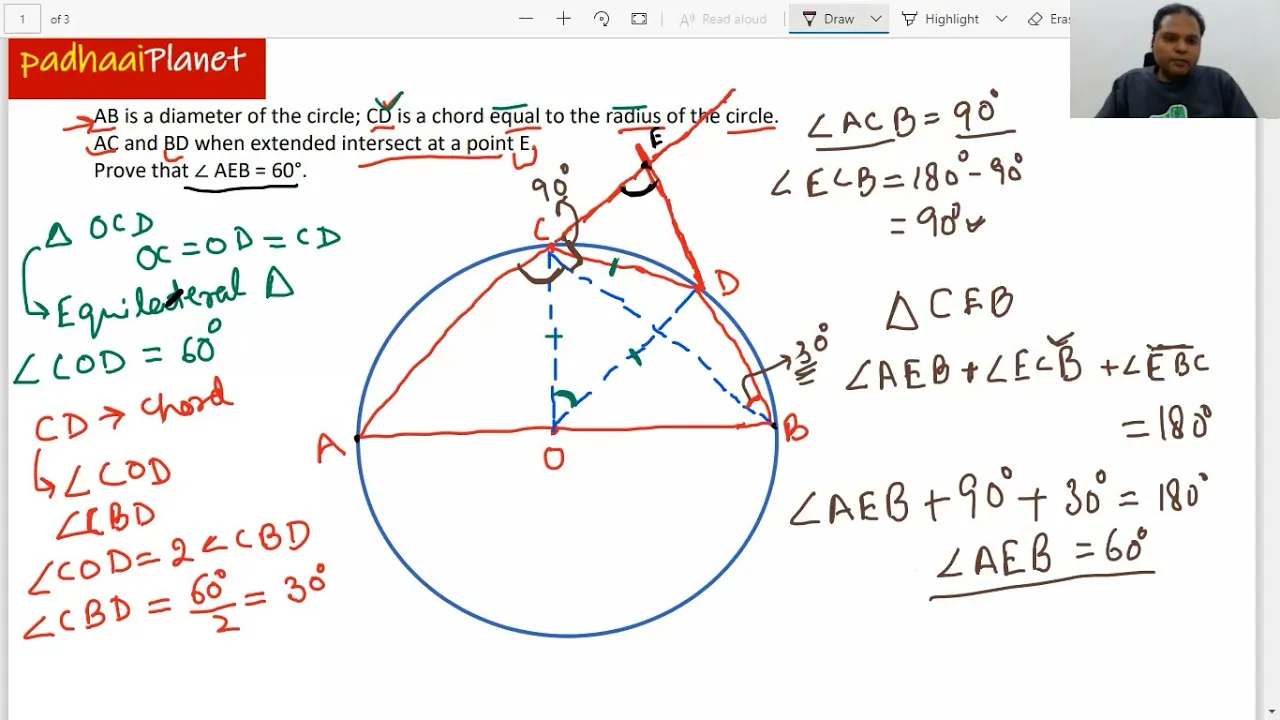 1 of 3
Read aloud
Draw
Highlight
padhaaiPlanet
AB is a diameter of the circle; CD is a chord equal to the radius of the circle.
AC and BD when extended intersect at a point E.
Prove that ∠ AEB = 60°.
△ OCD
OC = OD = CD
Equilateral △
∠COD = 60°
CD → chord
∠COD
∠CBD
∠COD = 2 ∠CBD
∠CBD = 60°/2 = 30°
E
90°
C
D
30°
A
O
B
∠ACB = 90°
∠ECB = 180° - 90°
= 90°
△ CEB
∠AEB + ∠ECB + ∠EBC
= 180°
∠AEB + 90° + 30° = 180°
∠AEB = 60°